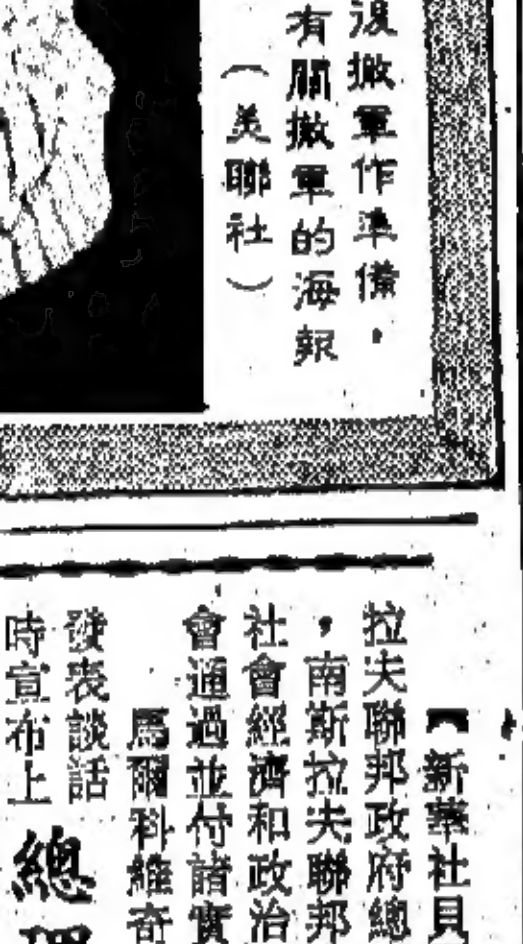 復撤軍作準備，
有關撤軍的海報
（美聯社）
【新華社貝
拉夫聯邦政府總
，南斯拉夫聯邦
社會經濟和政治
會通過並付諸實
馬爾科維奇
發表談話
時宣布上
總理